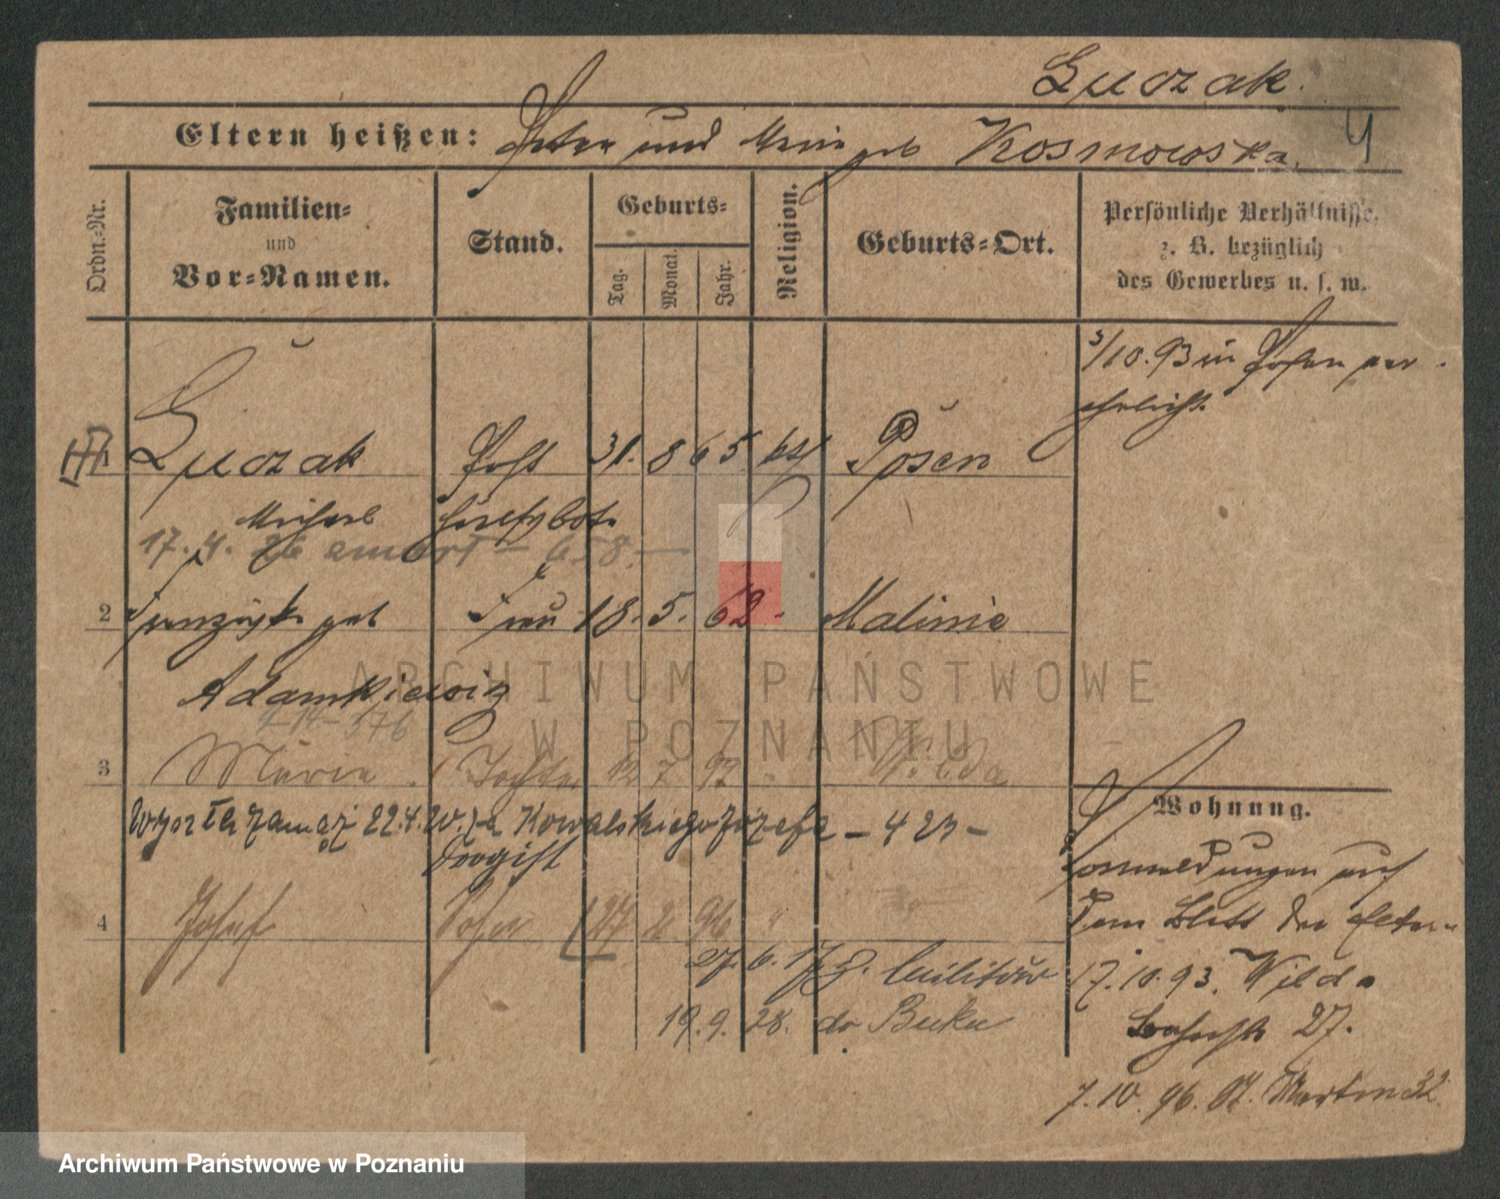 Luczak.
Eltern heißen: Peter und Marie geb Kosmowska.
4
Ordn.-Nr.
Familien-
und
Vor-Namen.
Stand.
Geburts-
Tag.
Monat.
Jahr.
Religion.
Geburts-Ort.
Persönliche Verhältnisse,
z. B. bezüglich
des Gewerbes u. s. w.
3/10.93 in Posen ver-
ehelicht.
Luczak Post 31. 8 65 kath Posen
Michael hülfsbot.
17.4.26 zmarł – 658 –
2 Franziska geb Frau 18. 5. 62. Malinie
Adamkiewicz
3 Maria Tochter 12 7 92 " Wilda
Wyszła zamąż 22.4.20. za Kowalskiego Józefa – 423 –
drogist
4 Josef Sohn 27 2 96 "
27.6.17 z. Militär
19.9.28. do Buku
Wohnung.
Vormeldungen auf
dem Blatt der Eltern
17.10.93. Wilda
27.
7.10.96. St. Martin 32.
ARCHIWUM PAŃSTWOWE
W POZNANIU
Archiwum Państwowe w Poznaniu